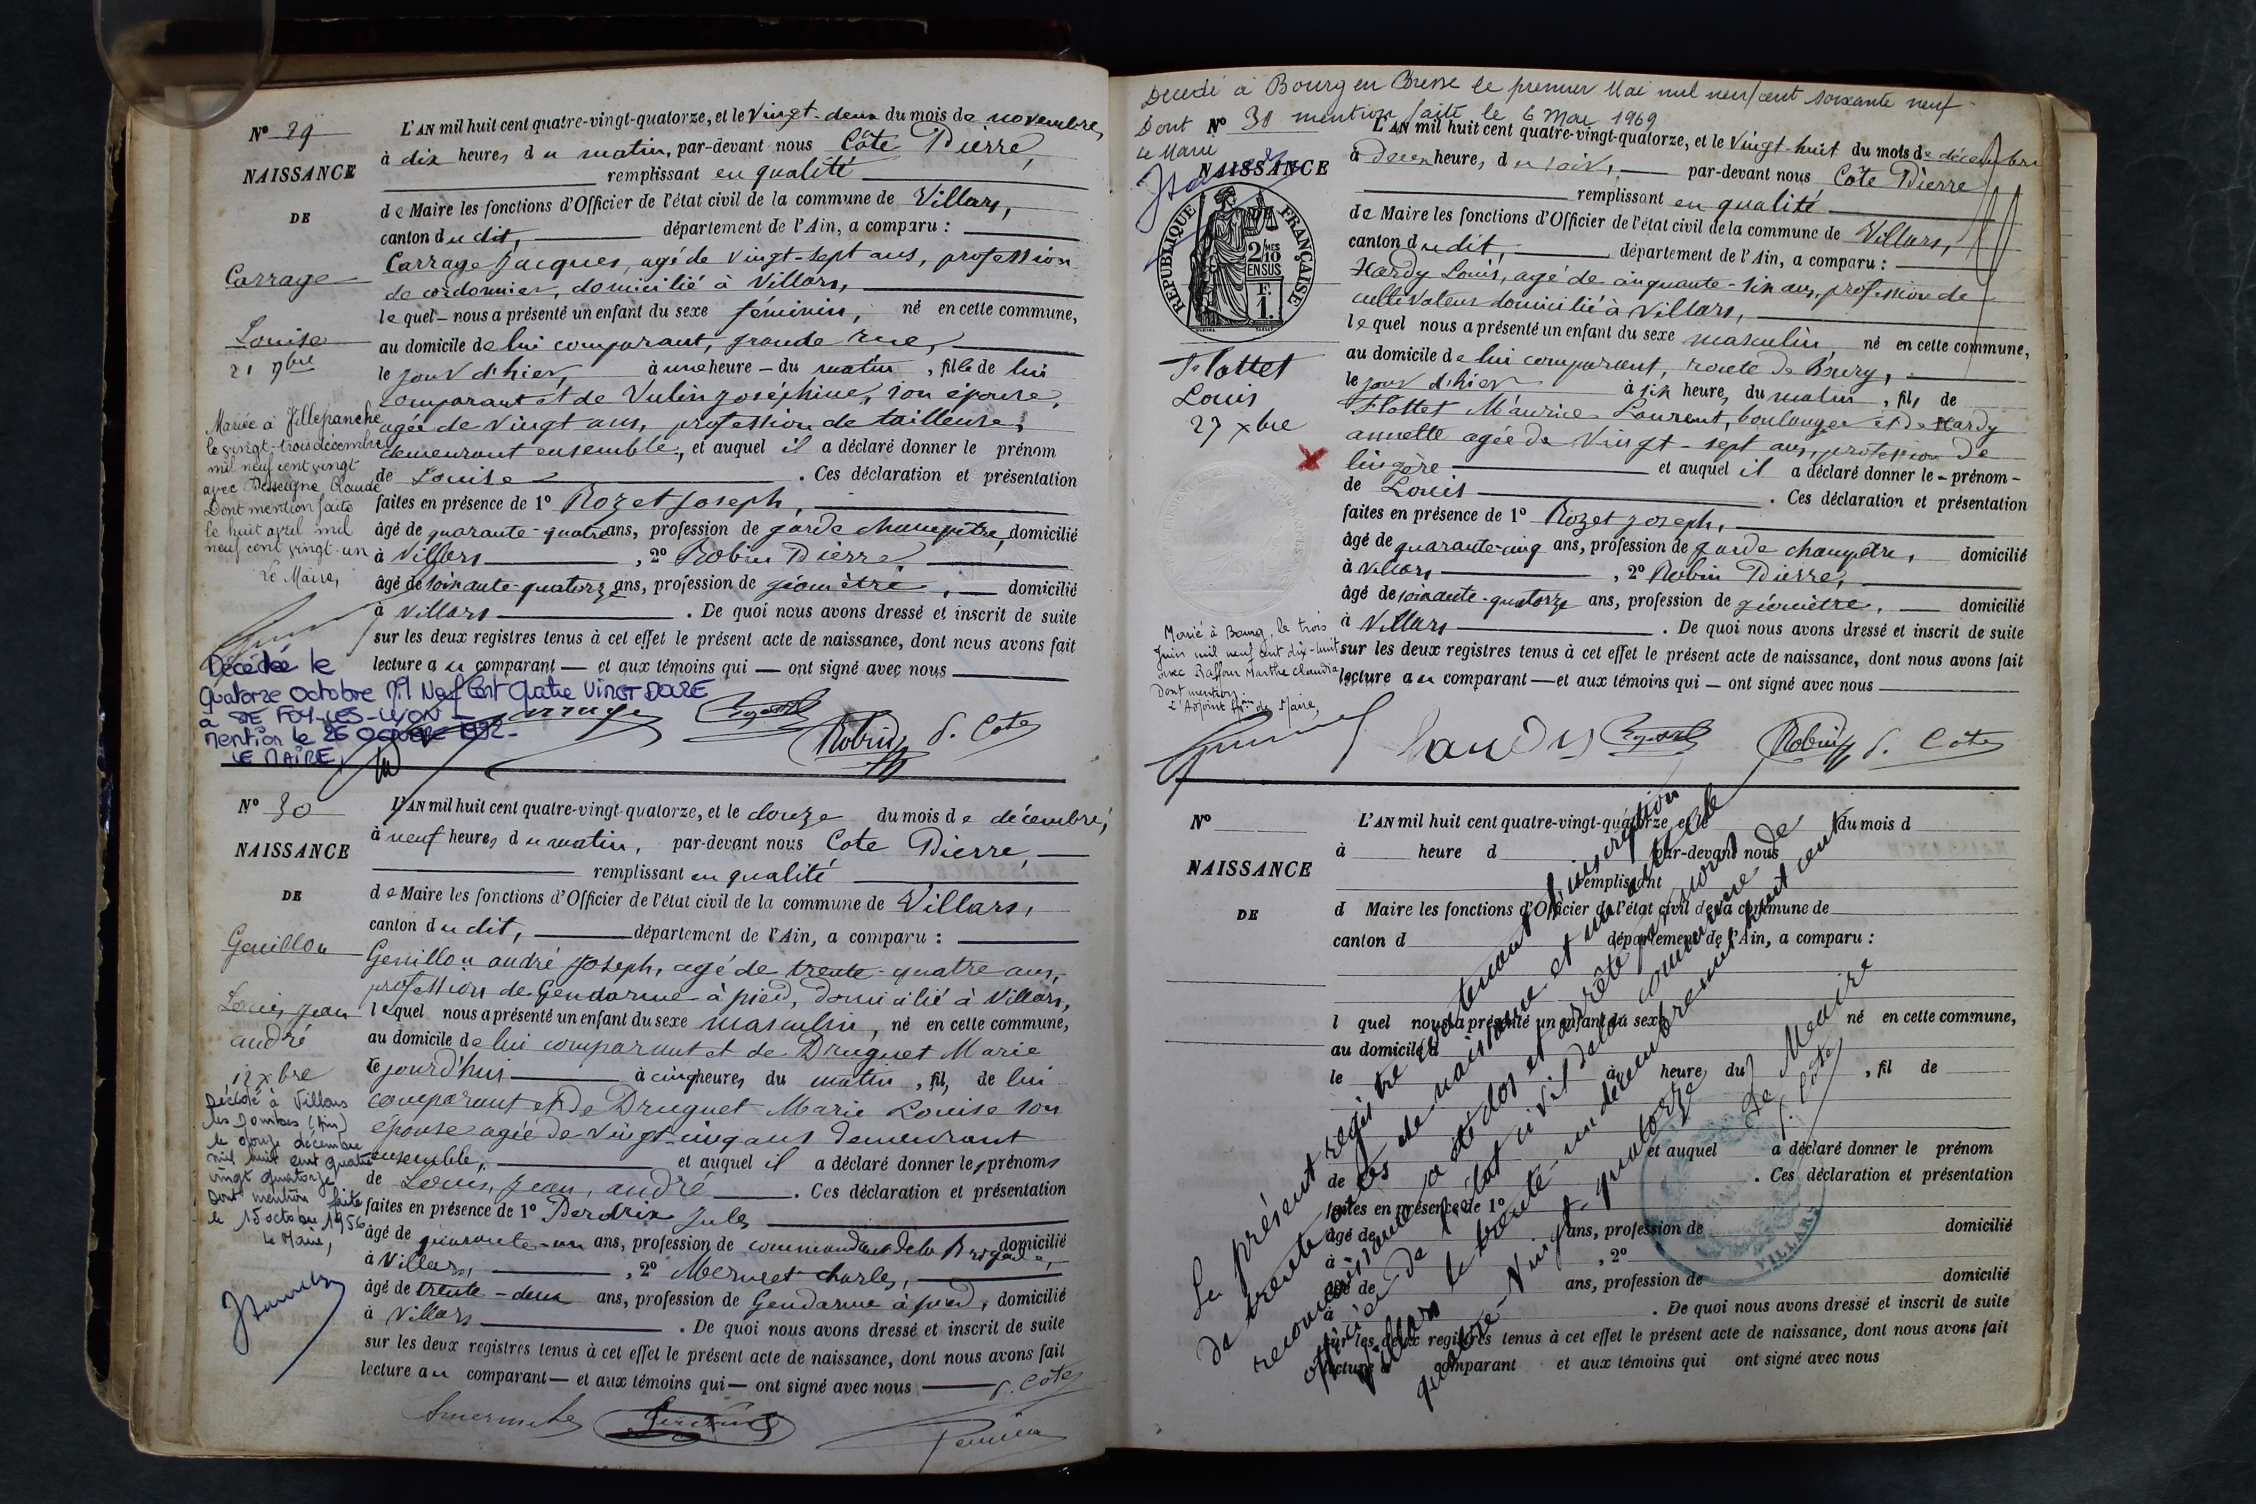 Nº 29
NAISSANCE
DE
Carrage
Louise
21 9bre
Mariée à Villefranche
le vingt-trois décembre
mil neuf cent vingt
avec Desseigne Claude
Dont mention faite
le huit avril mil
neuf cent vingt-un
Le Maire,
L'AN mil huit cent quatre-vingt-quatorze, et le vingt-deux du mois de novembre,
à dix heures du matin, par-devant nous Côte Pierre,
remplissant en qualité
de Maire les fonctions d'Officier de l'état civil de la commune de Villars,
canton dudit, département de l'Ain, a comparu :
Carrage Jacques, agé de vingt-sept ans, profession
de cordonnier, domicilié à Villars,
lequel nous a présenté un enfant du sexe féminin, né en cette commune,
au domicile de lui comparant, grande rue,
le jour d'hier à une heure du matin, fille de lui
comparant et de Vulin Joséphine, son épouse,
agée de vingt ans, profession de tailleuse,
demeurant ensemble, et auquel il a déclaré donner le prénom
de Louise . Ces déclaration et présentation
faites en présence de 1º Rozet Joseph,
âgé de quarante-quatre ans, profession de garde champêtre, domicilié
à Villars , 2º Robin Pierre
âgé de soixante-quatorze ans, profession de géomètre, domicilié
à Villars . De quoi nous avons dressé et inscrit de suite
sur les deux registres tenus à cet effet le présent acte de naissance, dont nous avons fait
lecture au comparant — et aux témoins qui — ont signé avec nous
Décédée le
quatorze octobre Mil Neuf Cent Quatre Vingt Douze
à STE FOY-LES-LYON
Mention le 26 Octobre 1992
LE MAIRE,
Carrage Robin P. Cote
Nº 30
NAISSANCE
DE
Genillon
Louis, Jean
andré
12 xbre
Décédé à Villars
les Dombes (Ain)
le douze décembre
mil huit cent quatre
vingt quatorze
Dont mention faite
le 15 octobre 1956
Le Maire,
L'AN mil huit cent quatre-vingt-quatorze, et le douze du mois de décembre,
à neuf heures du matin, par-devant nous Cote Pierre,
remplissant en qualité
de Maire les fonctions d'Officier de l'état civil de la commune de Villars,
canton dudit, département de l'Ain, a comparu :
Genillon andré Joseph, agé de trente-quatre ans,
profession de Gendarme à pied, domicilié à Villars,
lequel nous a présenté un enfant du sexe masculin, né en cette commune,
au domicile de lui comparant et de Druguet Marie
le jourd'hui à cinq heures du matin, fils de lui
comparant et de Druguet Marie Louise son
épouse agée de vingt-cinq ans demeurant
ensemble, et auquel il a déclaré donner les prénoms
de Louis, Jean, andré . Ces déclaration et présentation
faites en présence de 1º Perdrix Jules
âgé de quarante-un ans, profession de commandant de la Brigade, domicilié
à Villars, , 2º Mermet Charles,
âgé de trente-deux ans, profession de Gendarme à pied, domicilié
à Villars . De quoi nous avons dressé et inscrit de suite
sur les deux registres tenus à cet effet le présent acte de naissance, dont nous avons fait
lecture au comparant — et aux témoins qui — ont signé avec nous P. Cote
Décédé à Bourg en Bresse le premier Mai mil neuf cent soixante neuf
Dont mention faite le 6 Mai 1969
Le Maire
Nº 31
NAISSANCE
RÉPUBLIQUE FRANÇAISE
2/10 MES
EN SUS
F.
1.
Flottet
Louis
27 xbre
Marié à Bourg, le trois
Juin mil neuf cent dix-huit
avec Raffour Marthe Claudia
Dont mention.
L'Adjoint de Maire,
L'AN mil huit cent quatre-vingt-quatorze, et le vingt-huit du mois de décembre
à deux heures, du soir, par-devant nous Côte Pierre
remplissant en qualité
de Maire les fonctions d'Officier de l'état civil de la commune de Villars,
canton dudit, département de l'Ain, a comparu :
Hardy Louis, agé de cinquante-six ans, profession de
cultivateur domicilié à Villars,
lequel nous a présenté un enfant du sexe masculin né en cette commune,
au domicile de lui comparant, route de Bourg,
le jour d'hier à six heures, du matin, fils de
Flottet Maurice Laurent, boulanger et de Hardy
annette agée de vingt-sept ans, profession de
lingère et auquel il a déclaré donner le prénom
de Louis . Ces déclaration et présentation
faites en présence de 1º Rozet Joseph,
âgé de quarante-cinq ans, profession de garde champêtre, domicilié
à Villars , 2º Robin Pierre,
âgé de soixante-quatorze ans, profession de géomètre, domicilié
à Villars . De quoi nous avons dressé et inscrit de suite
sur les deux registres tenus à cet effet le présent acte de naissance, dont nous avons fait
lecture au comparant — et aux témoins qui — ont signé avec nous
hardy Robin P. Côte
Nº
NAISSANCE
DE
L'AN mil huit cent quatre-vingt-quatorze, et le du mois d
à heure d par-devant nous
remplissant
d Maire les fonctions d'Officier de l'état civil de la commune de
canton d département de l'Ain, a comparu :
l quel nous a présenté un enfant du sexe né en cette commune,
au domicile d
le à heure du , fil de
et auquel a déclaré donner le prénom
de . Ces déclaration et présentation
faites en présence de 1º
âgé de ans, profession de domicilié
à , 2º
âgé de ans, profession de domicilié
à . De quoi nous avons dressé et inscrit de suite
sur les deux registres tenus à cet effet le présent acte de naissance, dont nous avons fait
lecture comparant et aux témoins qui ont signé avec nous
Le présent registre contenant l'inscription
de trente actes de naissance et un acte de
reconnaissance a été clos et arrêté par nous
officier de l'état civil de la commune de
Villars le trente-un décembre mil huit cent
quatre-vingt-quatorze
Le Maire
P. Cote
VILLARS